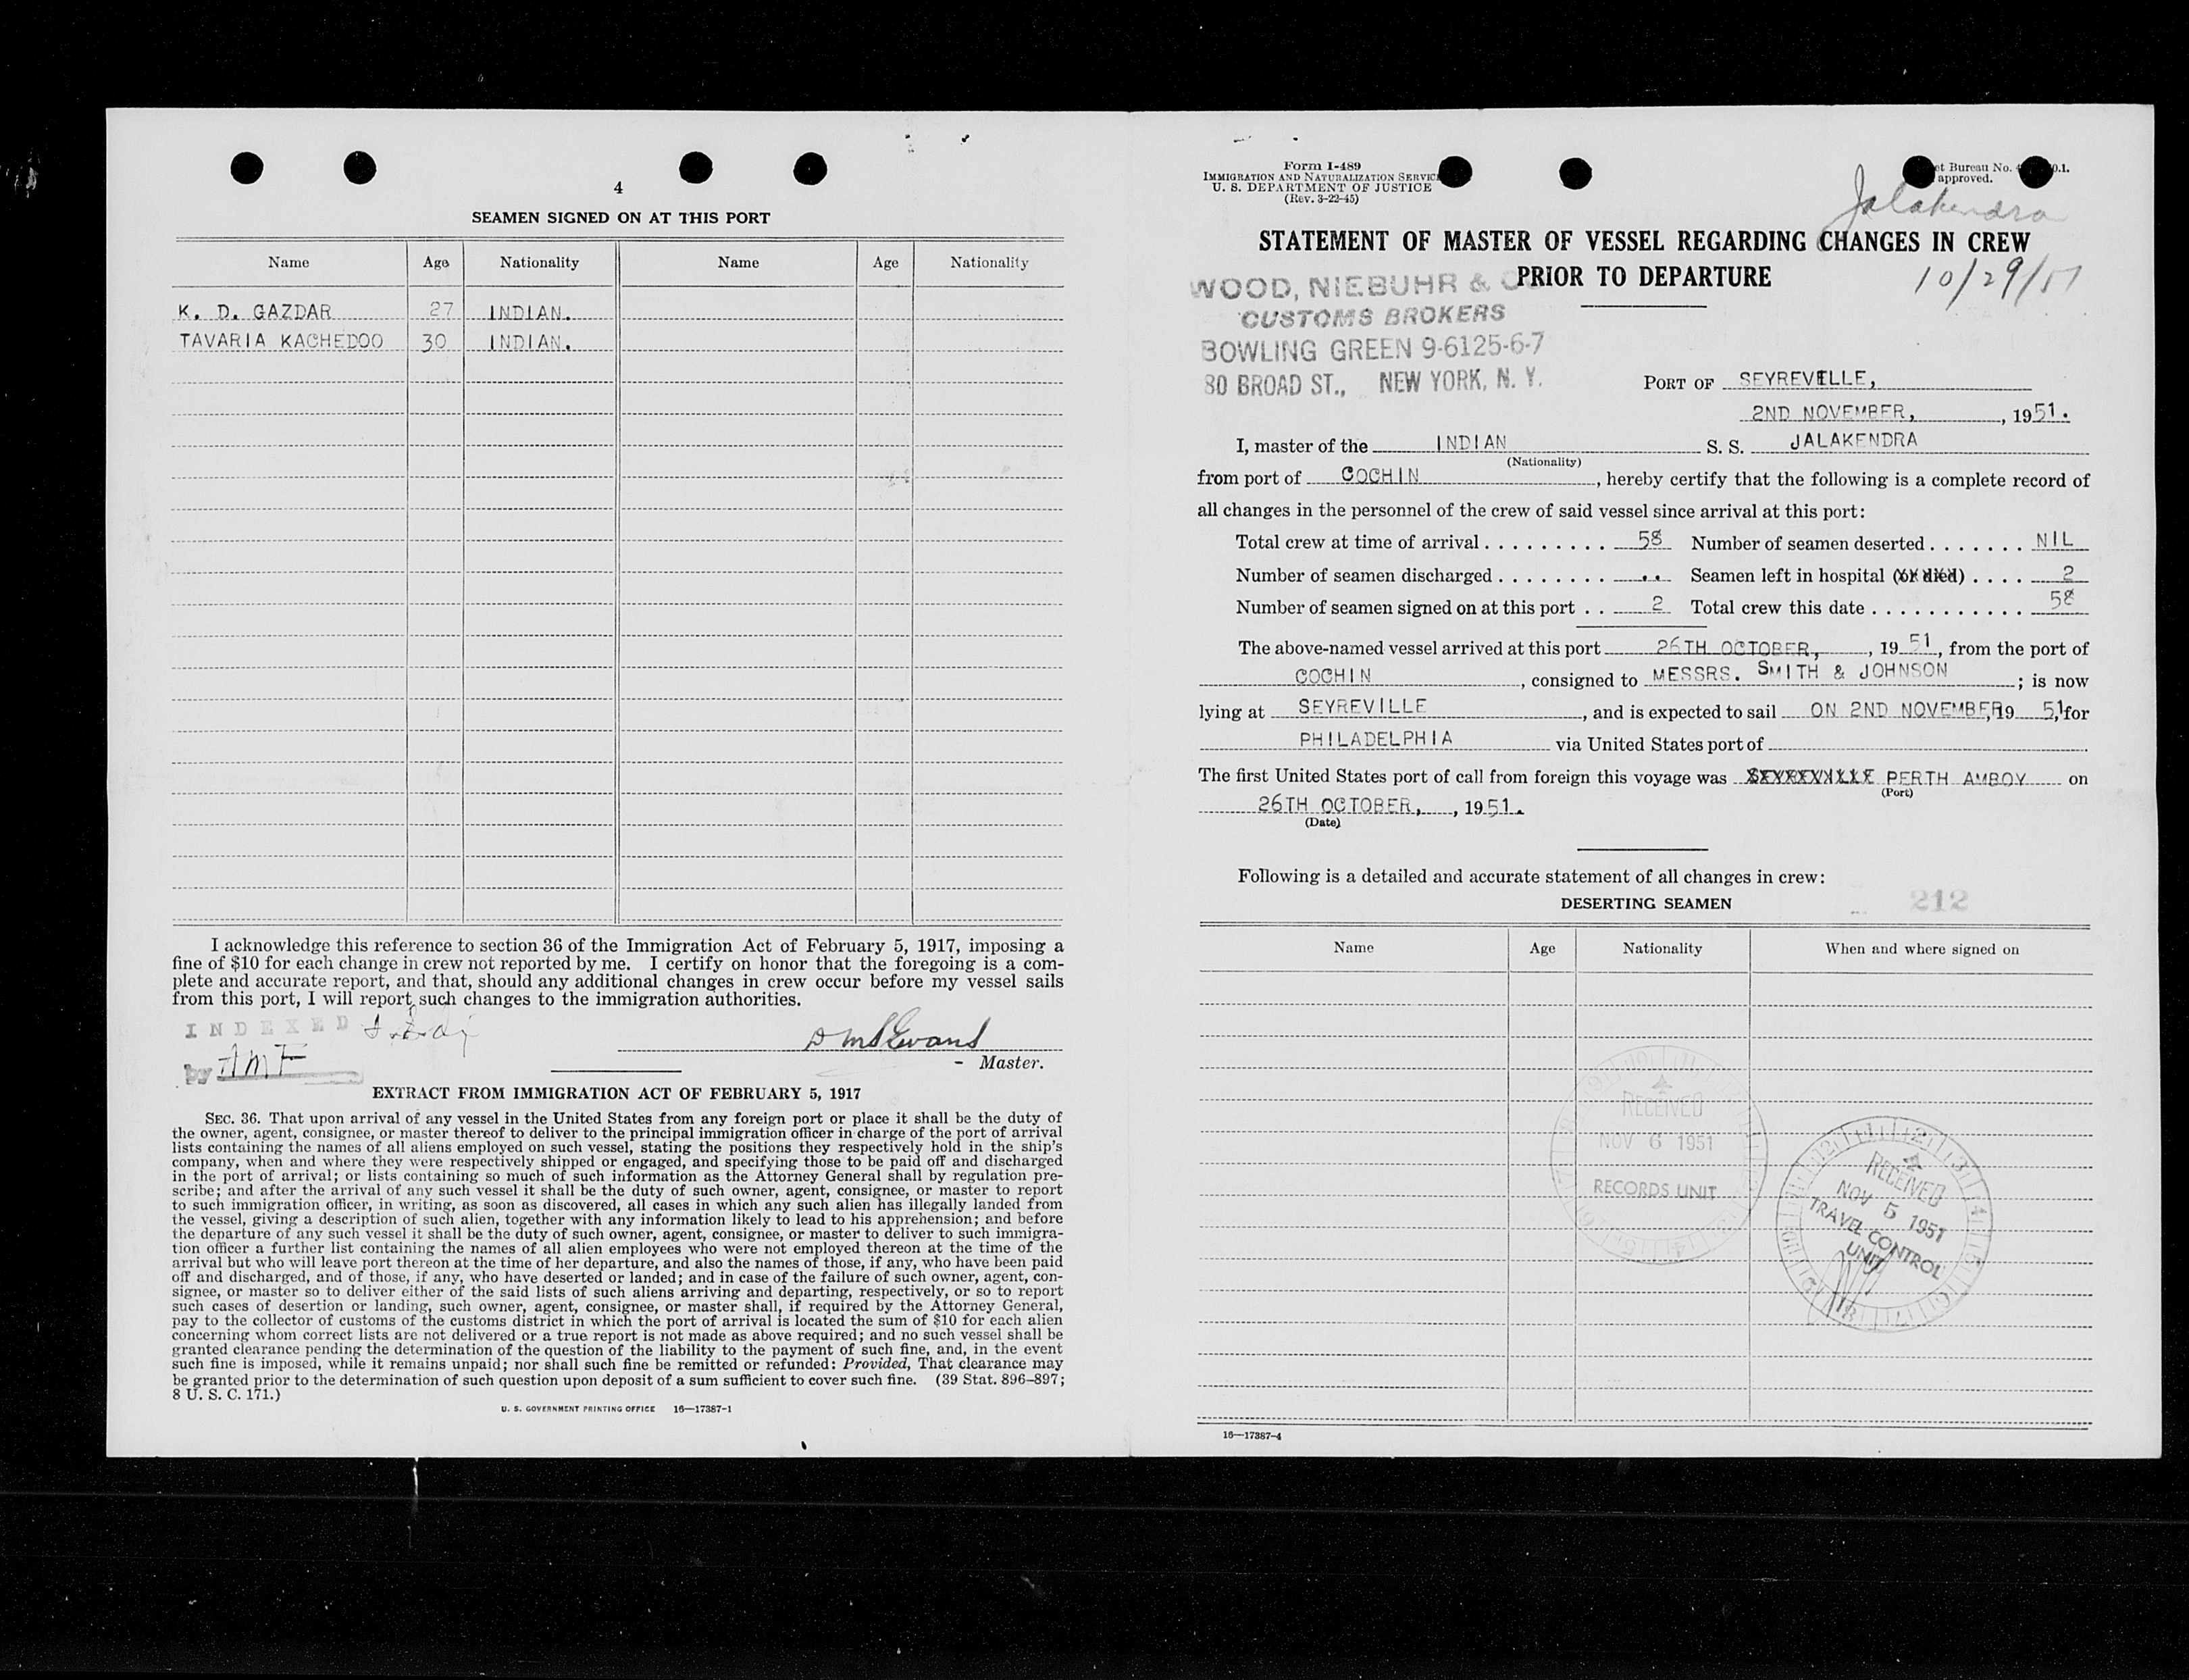 4
SEAMEN SIGNED ON AT THIS PORT
Name Age Nationality Name Age Nationality
K. D. GAZDAR 27 INDIAN.
TAVARIA KACHEDOO 30 INDIAN.
I acknowledge this reference to section 36 of the Immigration Act of February 5, 1917, imposing a
fine of $10 for each change in crew not reported by me. I certify on honor that the foregoing is a com-
plete and accurate report, and that, should any additional changes in crew occur before my vessel sails
from this port, I will report such changes to the immigration authorities.
INDEXED
by AMF
Evans
Master.
EXTRACT FROM IMMIGRATION ACT OF FEBRUARY 5, 1917
SEC. 36. That upon arrival of any vessel in the United States from any foreign port or place it shall be the duty of
the owner, agent, consignee, or master thereof to deliver to the principal immigration officer in charge of the port of arrival
lists containing the names of all aliens employed on such vessel, stating the positions they respectively hold in the ship's
company, when and where they were respectively shipped or engaged, and specifying those to be paid off and discharged
in the port of arrival; or lists containing so much of such information as the Attorney General shall by regulation pre-
scribe; and after the arrival of any such vessel it shall be the duty of such owner, agent, consignee, or master to report
to such immigration officer, in writing, as soon as discovered, all cases in which any such alien has illegally landed from
the vessel, giving a description of such alien, together with any information likely to lead to his apprehension; and before
the departure of any such vessel it shall be the duty of such owner, agent, consignee, or master to deliver to such immigra-
tion officer a further list containing the names of all alien employees who were not employed thereon at the time of the
arrival but who will leave port thereon at the time of her departure, and also the names of those, if any, who have been paid
off and discharged, and of those, if any, who have deserted or landed; and in case of the failure of such owner, agent, con-
signee, or master so to deliver either of the said lists of such aliens arriving and departing, respectively, or so to report
such cases of desertion or landing, such owner, agent, consignee, or master shall, if required by the Attorney General,
pay to the collector of customs of the customs district in which the port of arrival is located the sum of $10 for each alien
concerning whom correct lists are not delivered or a true report is not made as above required; and no such vessel shall be
granted clearance pending the determination of the question of the liability to the payment of such fine, and, in the event
such fine is imposed, while it remains unpaid; nor shall such fine be remitted or refunded: Provided, That clearance may
be granted prior to the determination of such question upon deposit of a sum sufficient to cover such fine. (39 Stat. 896–897;
8 U. S. C. 171.)
U. S. GOVERNMENT PRINTING OFFICE 16—17387-1
Form I-489
IMMIGRATION AND NATURALIZATION SERVIC
U. S. DEPARTMENT OF JUSTICE
(Rev. 3-22-45)
et Bureau No. 0.1.
approved.
Jalakendra
STATEMENT OF MASTER OF VESSEL REGARDING CHANGES IN CREW
PRIOR TO DEPARTURE
10/29/51
WOOD, NIEBUHR & CO
CUSTOMS BROKERS
BOWLING GREEN 9-6125-6-7
80 BROAD ST., NEW YORK, N. Y.
PORT OF SEYREVILLE,
2ND NOVEMBER, , 1951.
I, master of the INDIAN S. S. JALAKENDRA
(Nationality)
from port of COCHIN , hereby certify that the following is a complete record of
all changes in the personnel of the crew of said vessel since arrival at this port:
Total crew at time of arrival . . . . . . . . . . 58 Number of seamen deserted . . . . . . . NIL
Number of seamen discharged . . . . . . . . .. Seamen left in hospital (or died) . . . . 2
Number of seamen signed on at this port . . 2 Total crew this date . . . . . . . . . . . . 58
The above-named vessel arrived at this port 26TH OCTOBER, , 19 51, from the port of
COCHIN , consigned to MESSRS. SMITH & JOHNSON ; is now
lying at SEYREVILLE , and is expected to sail ON 2ND NOVEMBER, 19 51, for
PHILADELPHIA via United States port of
The first United States port of call from foreign this voyage was SEYREVILLE PERTH AMBOY on
(Port)
26TH OCTOBER, , 1951.
(Date)
Following is a detailed and accurate statement of all changes in crew:
DESERTING SEAMEN
212
Name Age Nationality When and where signed on
RECEIVED
NOV 6 1951
RECORDS UNIT
RECEIVED
NOV 5 1951
TRAVEL CONTROL
UNIT
16—17387-4